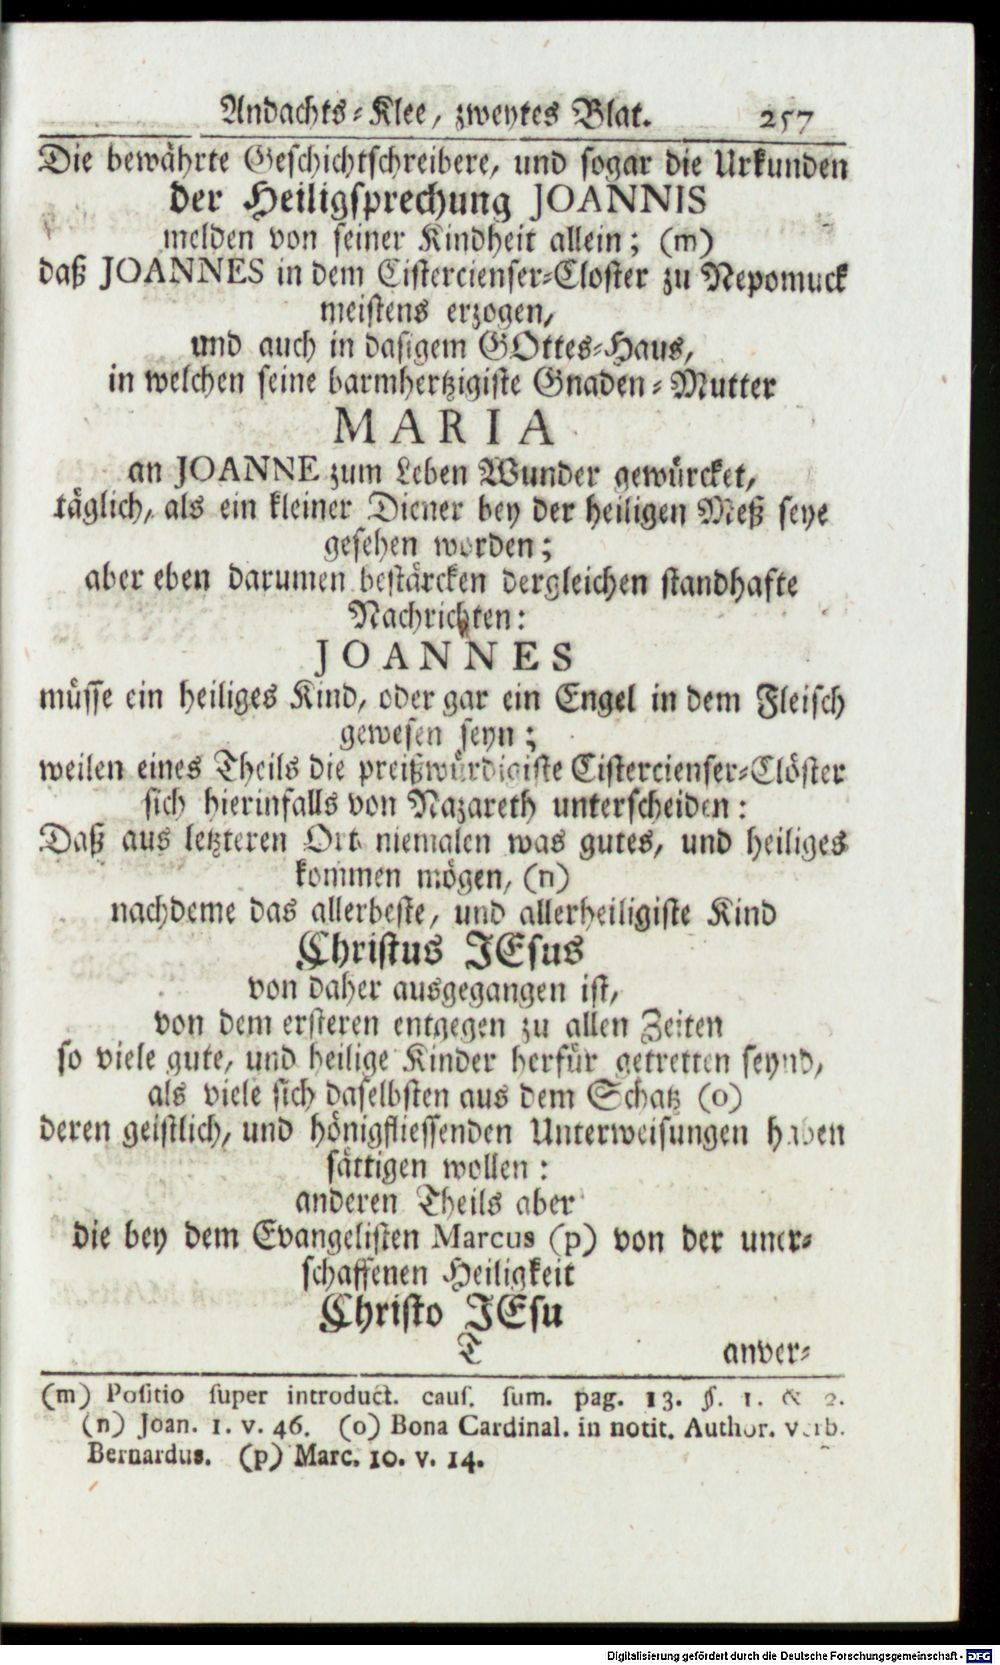 Andachts-Klee, zweytes Blat. 257
Die bewährte Geschichtschreibere, und sogar die Urkunden
der Heiligsprechung JOANNIS
melden von seiner Kindheit allein; (m)
daß JOANNES in dem Cistercienser-Closter zu Nepomuck
meistens erzogen,
und auch in dasigem GOttes-Haus,
in welchen seine barmhertzigiste Gnaden-Mutter
MARIA
an JOANNE zum Leben Wunder gewürcket,
täglich, als ein kleiner Diener bey der heiligen Meß seye
gesehen worden;
aber eben darumen bestärcken dergleichen standhafte
Nachrichten:
JOANNES
müsse ein heiliges Kind, oder gar ein Engel in dem Fleisch
gewesen seyn;
weilen eines Theils die preißwürdigiste Cistercienser-Clöster
sich hierinfalls von Nazareth unterscheiden:
Daß aus letzteren Ort niemalen was gutes, und heiliges
kommen mögen, (n)
nachdeme das allerbeste, und allerheiligiste Kind
Christus JEsus
von daher ausgegangen ist,
von dem ersteren entgegen zu allen Zeiten
so viele gute, und heilige Kinder herfür getretten seynd,
als viele sich daselbsten aus dem Schatz (o)
deren geistlich, und hönigfliessenden Unterweisungen haben
sättigen wollen:
anderen Theils aber
die bey dem Evangelisten Marcus (p) von der uner-
schaffenen Heiligkeit
Christo JEsu
T anver-
(m) Positio super introduct. caus. sum. pag. 13. §. 1. & 2.
(n) Joan. 1. v. 46. (o) Bona Cardinal. in notit. Author. verb.
Bernardus. (p) Marc. 10. v. 14.
Digitalisierung gefördert durch die Deutsche Forschungsgemeinschaft - DFG